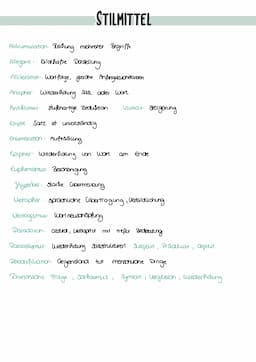 STILMITTEL
Akkumulation: Reihung mehrerer Begriffe
Allegorie: bildhafte Darstellung
Alliteration: Wortfolge, gleiche Anfangsbuchstaben
Anapher: Wiederholung Satz oder Wort
Antiklimax: stufenartige Reduktion Klimax: Steigerung
Ellipse: Satz ist unvollständig
Enumeration: Aufzählung
Epipher: Wiederholung von Wort am Ende
Euphemismus: Beschönigung
Hyperbel: starke Übertreibung
Metapher: sprachliche Übertragung, Verbildlichung
Neologismus: Wortneuschöpfung
Paradoxon: Wortlaut mit tiefer Bedeutung
Parallelismus: Wiederholung Satzstrukturen Subjekt, Prädikat, Objekt
Personifikation: Gegenstand tut menschliche Dinge
Rhetorische Frage, Sarkasmus, Symbol, Vergleich, Wiederholung